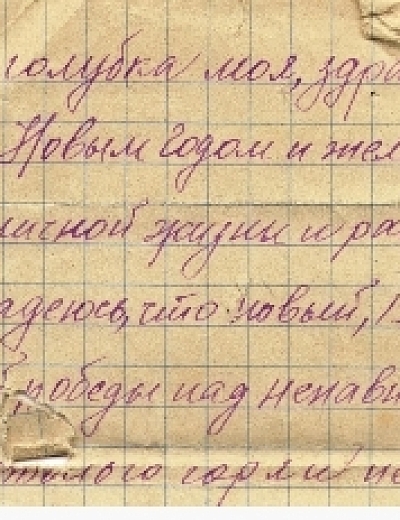 голубка моя, здра
Новым Годом и жел
личной жизни и ра
адеюсь, что новый, 1
победы над ненави
только горя и не